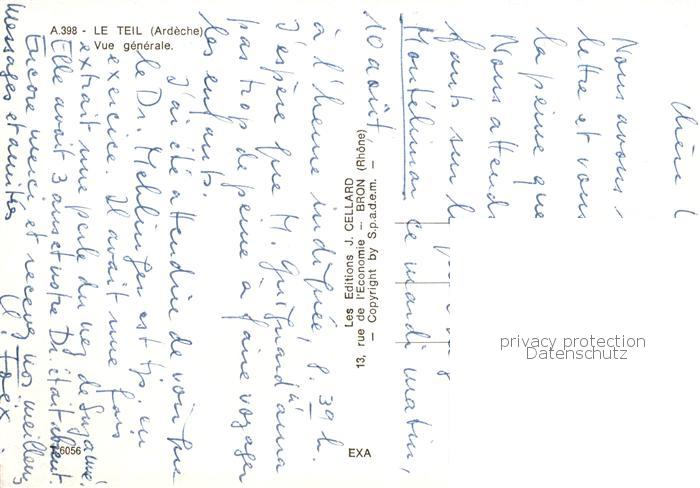 A.398 - LE TEIL (Ardèche)
Vue générale.
Les Editions J. CELLARD
13, rue de l'Economie - BRON (Rhône)
- Copyright by S.p.a.d.e.m. -
EXA
6056
privacy protection
Datenschutz
Nous avons
lettre et vous
la peine que
Nous attends
fants sur le
Montélimar ce mardi matin,
10 août,
à l'heure indiquée, 8. 39 h.
J'espère que M. Guignard n'aura
pas trop de peine à faire voyager
les enfants.
J'ai été attendrie de voir que
le Dr. Mehlinger est tjs. en
exercice. Il avait une fois
extrait une perle du nez de Suzanne.
Elle avait 3 ans et votre Dr. était absent.
Encore merci et recevez nos meilleurs
messages et amitiés